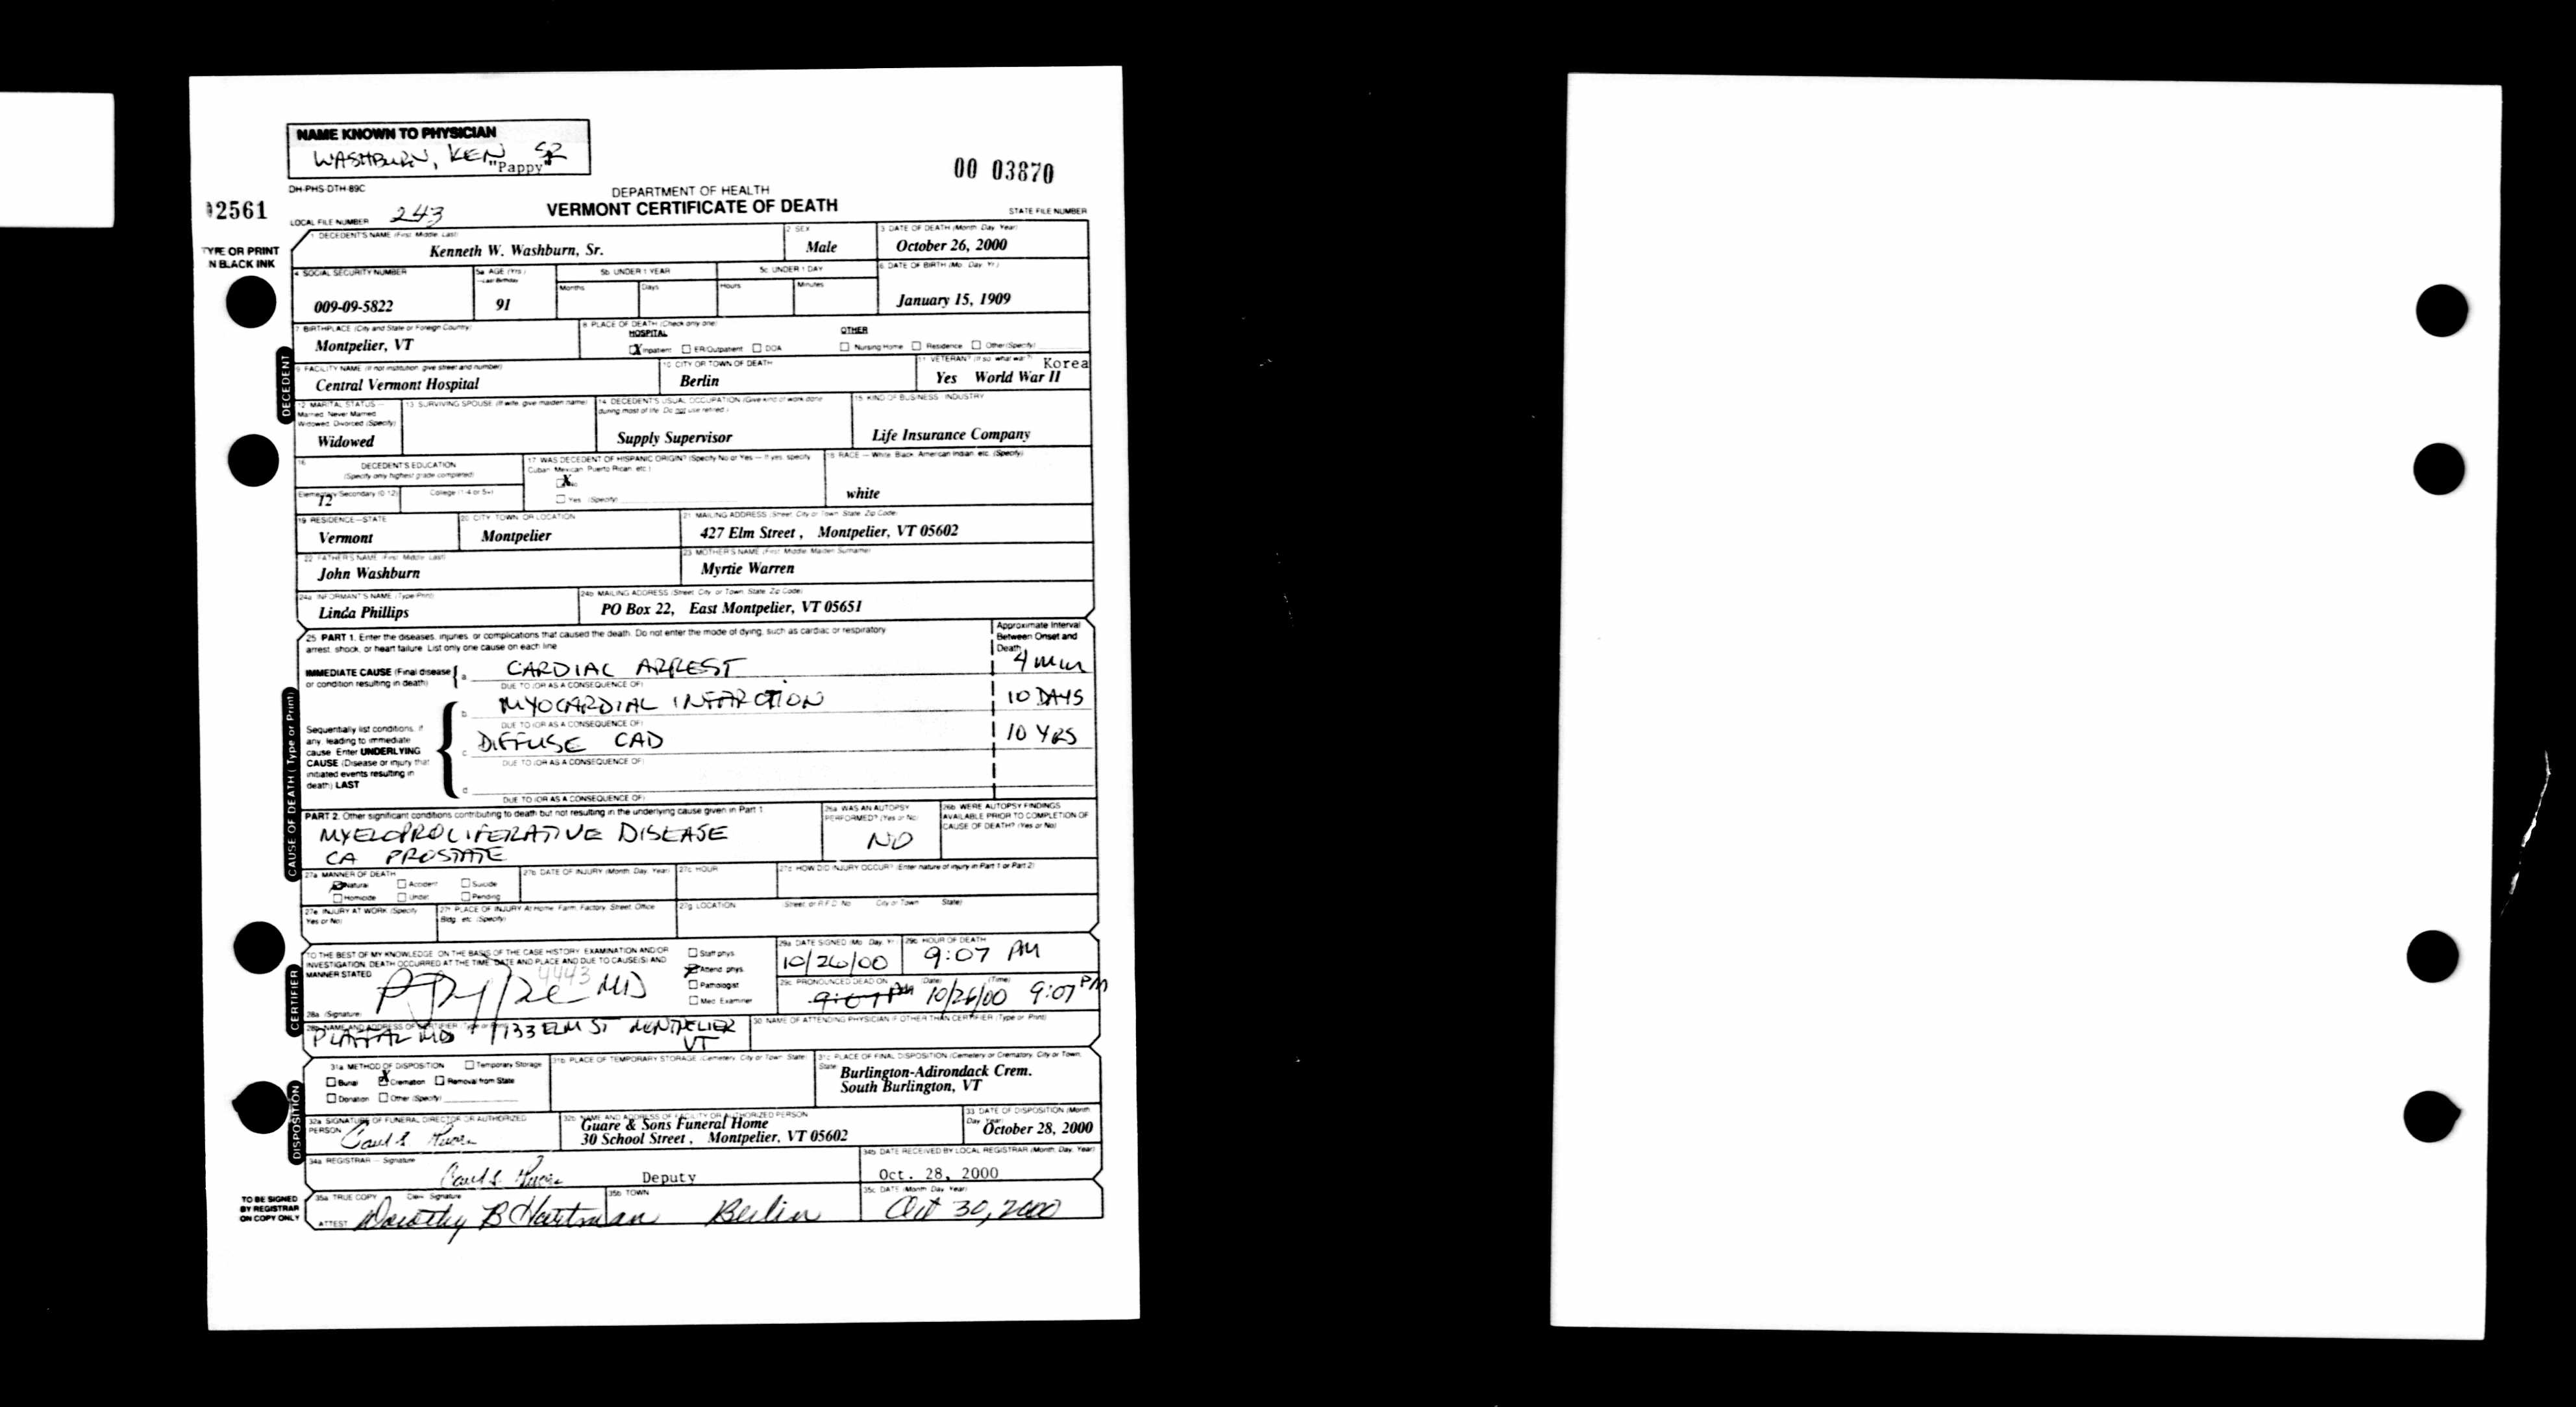 NAME KNOWN TO PHYSICIAN
WASHBURN, KEN SR
"Pappy"
00 03870
DH-PHS-DTH-89C
DEPARTMENT OF HEALTH
2561
LOCAL FILE NUMBER 243
VERMONT CERTIFICATE OF DEATH
STATE FILE NUMBER
TYPE OR PRINT
IN BLACK INK
DECEDENT
1 DECEDENT'S NAME (First, Middle, Last)
Kenneth W. Washburn, Sr.
2 SEX
Male
3 DATE OF DEATH (Month, Day, Year)
October 26, 2000
4 SOCIAL SECURITY NUMBER
009-09-5822
5a AGE (Yrs.)
—Last Birthday
91
5b UNDER 1 YEAR
Months Days
5c UNDER 1 DAY
Hours Minutes
6 DATE OF BIRTH (Mo. Day, Yr.)
January 15, 1909
7 BIRTHPLACE (City and State or Foreign Country)
Montpelier, VT
8 PLACE OF DEATH (Check only one)
HOSPITAL
X Inpatient ER/Outpatient DOA
OTHER
Nursing Home Residence Other (Specify)
9 FACILITY NAME (If not institution, give street and number)
Central Vermont Hospital
10 CITY OR TOWN OF DEATH
Berlin
11 VETERAN? (If so, what war?)
Korea
Yes World War II
12 MARITAL STATUS —
Married, Never Married,
Widowed, Divorced (Specify)
Widowed
13 SURVIVING SPOUSE (If wife, give maiden name)
14 DECEDENT'S USUAL OCCUPATION (Give kind of work done
during most of life. Do not use retired.)
Supply Supervisor
15 KIND OF BUSINESS, INDUSTRY
Life Insurance Company
16 DECEDENT'S EDUCATION
(Specify only highest grade completed)
Elementary/Secondary (0-12) College (1-4 or 5+)
12
17 WAS DECEDENT OF HISPANIC ORIGIN? (Specify No or Yes — If yes, specify
Cuban, Mexican, Puerto Rican, etc.)
X No
Yes (Specify)
18 RACE — White, Black, American Indian, etc. (Specify)
white
19 RESIDENCE—STATE
Vermont
20 CITY, TOWN, OR LOCATION
Montpelier
21 MAILING ADDRESS (Street, City or Town, State, Zip Code)
427 Elm Street , Montpelier, VT 05602
22 FATHER'S NAME (First, Middle, Last)
John Washburn
23 MOTHER'S NAME (First, Middle, Maiden Surname)
Myrtie Warren
24a INFORMANT'S NAME (Type/Print)
Linda Phillips
24b MAILING ADDRESS (Street, City or Town, State, Zip Code)
PO Box 22, East Montpelier, VT 05651
CAUSE OF DEATH (Type or Print)
25 PART 1. Enter the diseases, injuries, or complications that caused the death. Do not enter the mode of dying, such as cardiac or respiratory
arrest, shock, or heart failure. List only one cause on each line
Approximate Interval
Between Onset and
Death
IMMEDIATE CAUSE (Final disease
or condition resulting in death)
a CARDIAC ARREST 4 min
DUE TO (OR AS A CONSEQUENCE OF)
b MYOCARDIAL INFARCTION 10 DAYS
DUE TO (OR AS A CONSEQUENCE OF)
Sequentially list conditions, if
any, leading to immediate
cause. Enter UNDERLYING
CAUSE (Disease or injury that
initiated events resulting in
death) LAST
c DIFFUSE CAD 10 YRS
DUE TO (OR AS A CONSEQUENCE OF)
d
DUE TO (OR AS A CONSEQUENCE OF)
PART 2. Other significant conditions contributing to death but not resulting in the underlying cause given in Part 1
MYELOPROLIFERATIVE DISEASE
CA PROSTATE
26a WAS AN AUTOPSY
PERFORMED? (Yes or No)
NO
26b WERE AUTOPSY FINDINGS
AVAILABLE PRIOR TO COMPLETION OF
CAUSE OF DEATH? (Yes or No)
27a MANNER OF DEATH
Natural Accident Suicide
Homicide Undet. Pending
27b DATE OF INJURY (Month, Day, Year)
27c HOUR
27d HOW DID INJURY OCCUR? (Enter nature of injury in Part 1 or Part 2)
27e INJURY AT WORK (Specify
Yes or No)
27f PLACE OF INJURY At Home, Farm, Factory, Street, Office
Bldg. etc. (Specify)
27g LOCATION Street or R.F.D. No. City or Town State)
CERTIFIER
TO THE BEST OF MY KNOWLEDGE, ON THE BASIS OF THE CASE HISTORY, EXAMINATION AND/OR
INVESTIGATION, DEATH OCCURRED AT THE TIME, DATE AND PLACE AND DUE TO CAUSE(S) AND
MANNER STATED
4443
MD
28a (Signature)
Staff phys.
Attend. phys.
Pathologist
Med. Examiner
29a DATE SIGNED (Mo. Day, Yr.)
10/26/00
29b HOUR OF DEATH
9:07 PM
29c PRONOUNCED DEAD ON (Date) (Time)
10/26/00 9:07 PM
28b NAME AND ADDRESS OF CERTIFIER (Type or Print)
MD 133 ELM ST MONTPELIER
VT
30 NAME OF ATTENDING PHYSICIAN IF OTHER THAN CERTIFIER (Type or Print)
DISPOSITION
31a METHOD OF DISPOSITION Temporary Storage
Burial X Cremation Removal from State
Donation Other (Specify)
31b PLACE OF TEMPORARY STORAGE (Cemetery, City or Town, State)
31c PLACE OF FINAL DISPOSITION (Cemetery or Crematory, City or Town,
State)
Burlington-Adirondack Crem.
South Burlington, VT
32a SIGNATURE OF FUNERAL DIRECTOR OR AUTHORIZED
PERSON
32b NAME AND ADDRESS OF FACILITY OR AUTHORIZED PERSON
Guare & Sons Funeral Home
30 School Street , Montpelier, VT 05602
33 DATE OF DISPOSITION (Month,
Day, Year)
October 28, 2000
34a REGISTRAR — Signature
Deputy
34b DATE RECEIVED BY LOCAL REGISTRAR (Month, Day, Year)
Oct. 28, 2000
TO BE SIGNED
BY REGISTRAR
ON COPY ONLY
35a TRUE COPY Clerk Signature
ATTEST Dorothy B Hartman
35b TOWN
Berlin
35c DATE (Month, Day, Year)
Oct 30, 2000